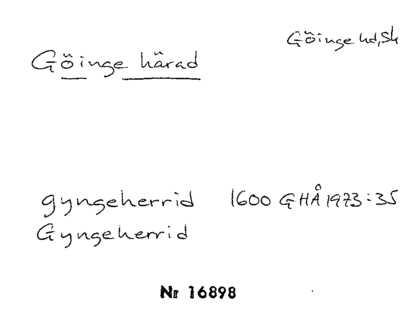 Göinge hd, Sk
Göinge härad
gyngeherrid 1600 GHÅ 1973:35
Gyngeherrid
Nr 16898